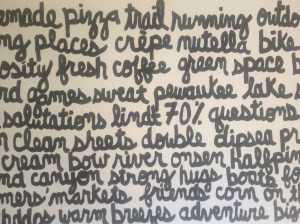 ermade pizza trail running outdo
ng places crêpe nutella bike
osity fresh coffee green space b
rd games sweat pewaukee lake s
salutations lindt 70% questions
n clean sheets double dipsea pr
cream bow river onsen halfpip
nd canyon strong hugs boats fo
mers' markets friends corn on t
warm breezes adventure bi